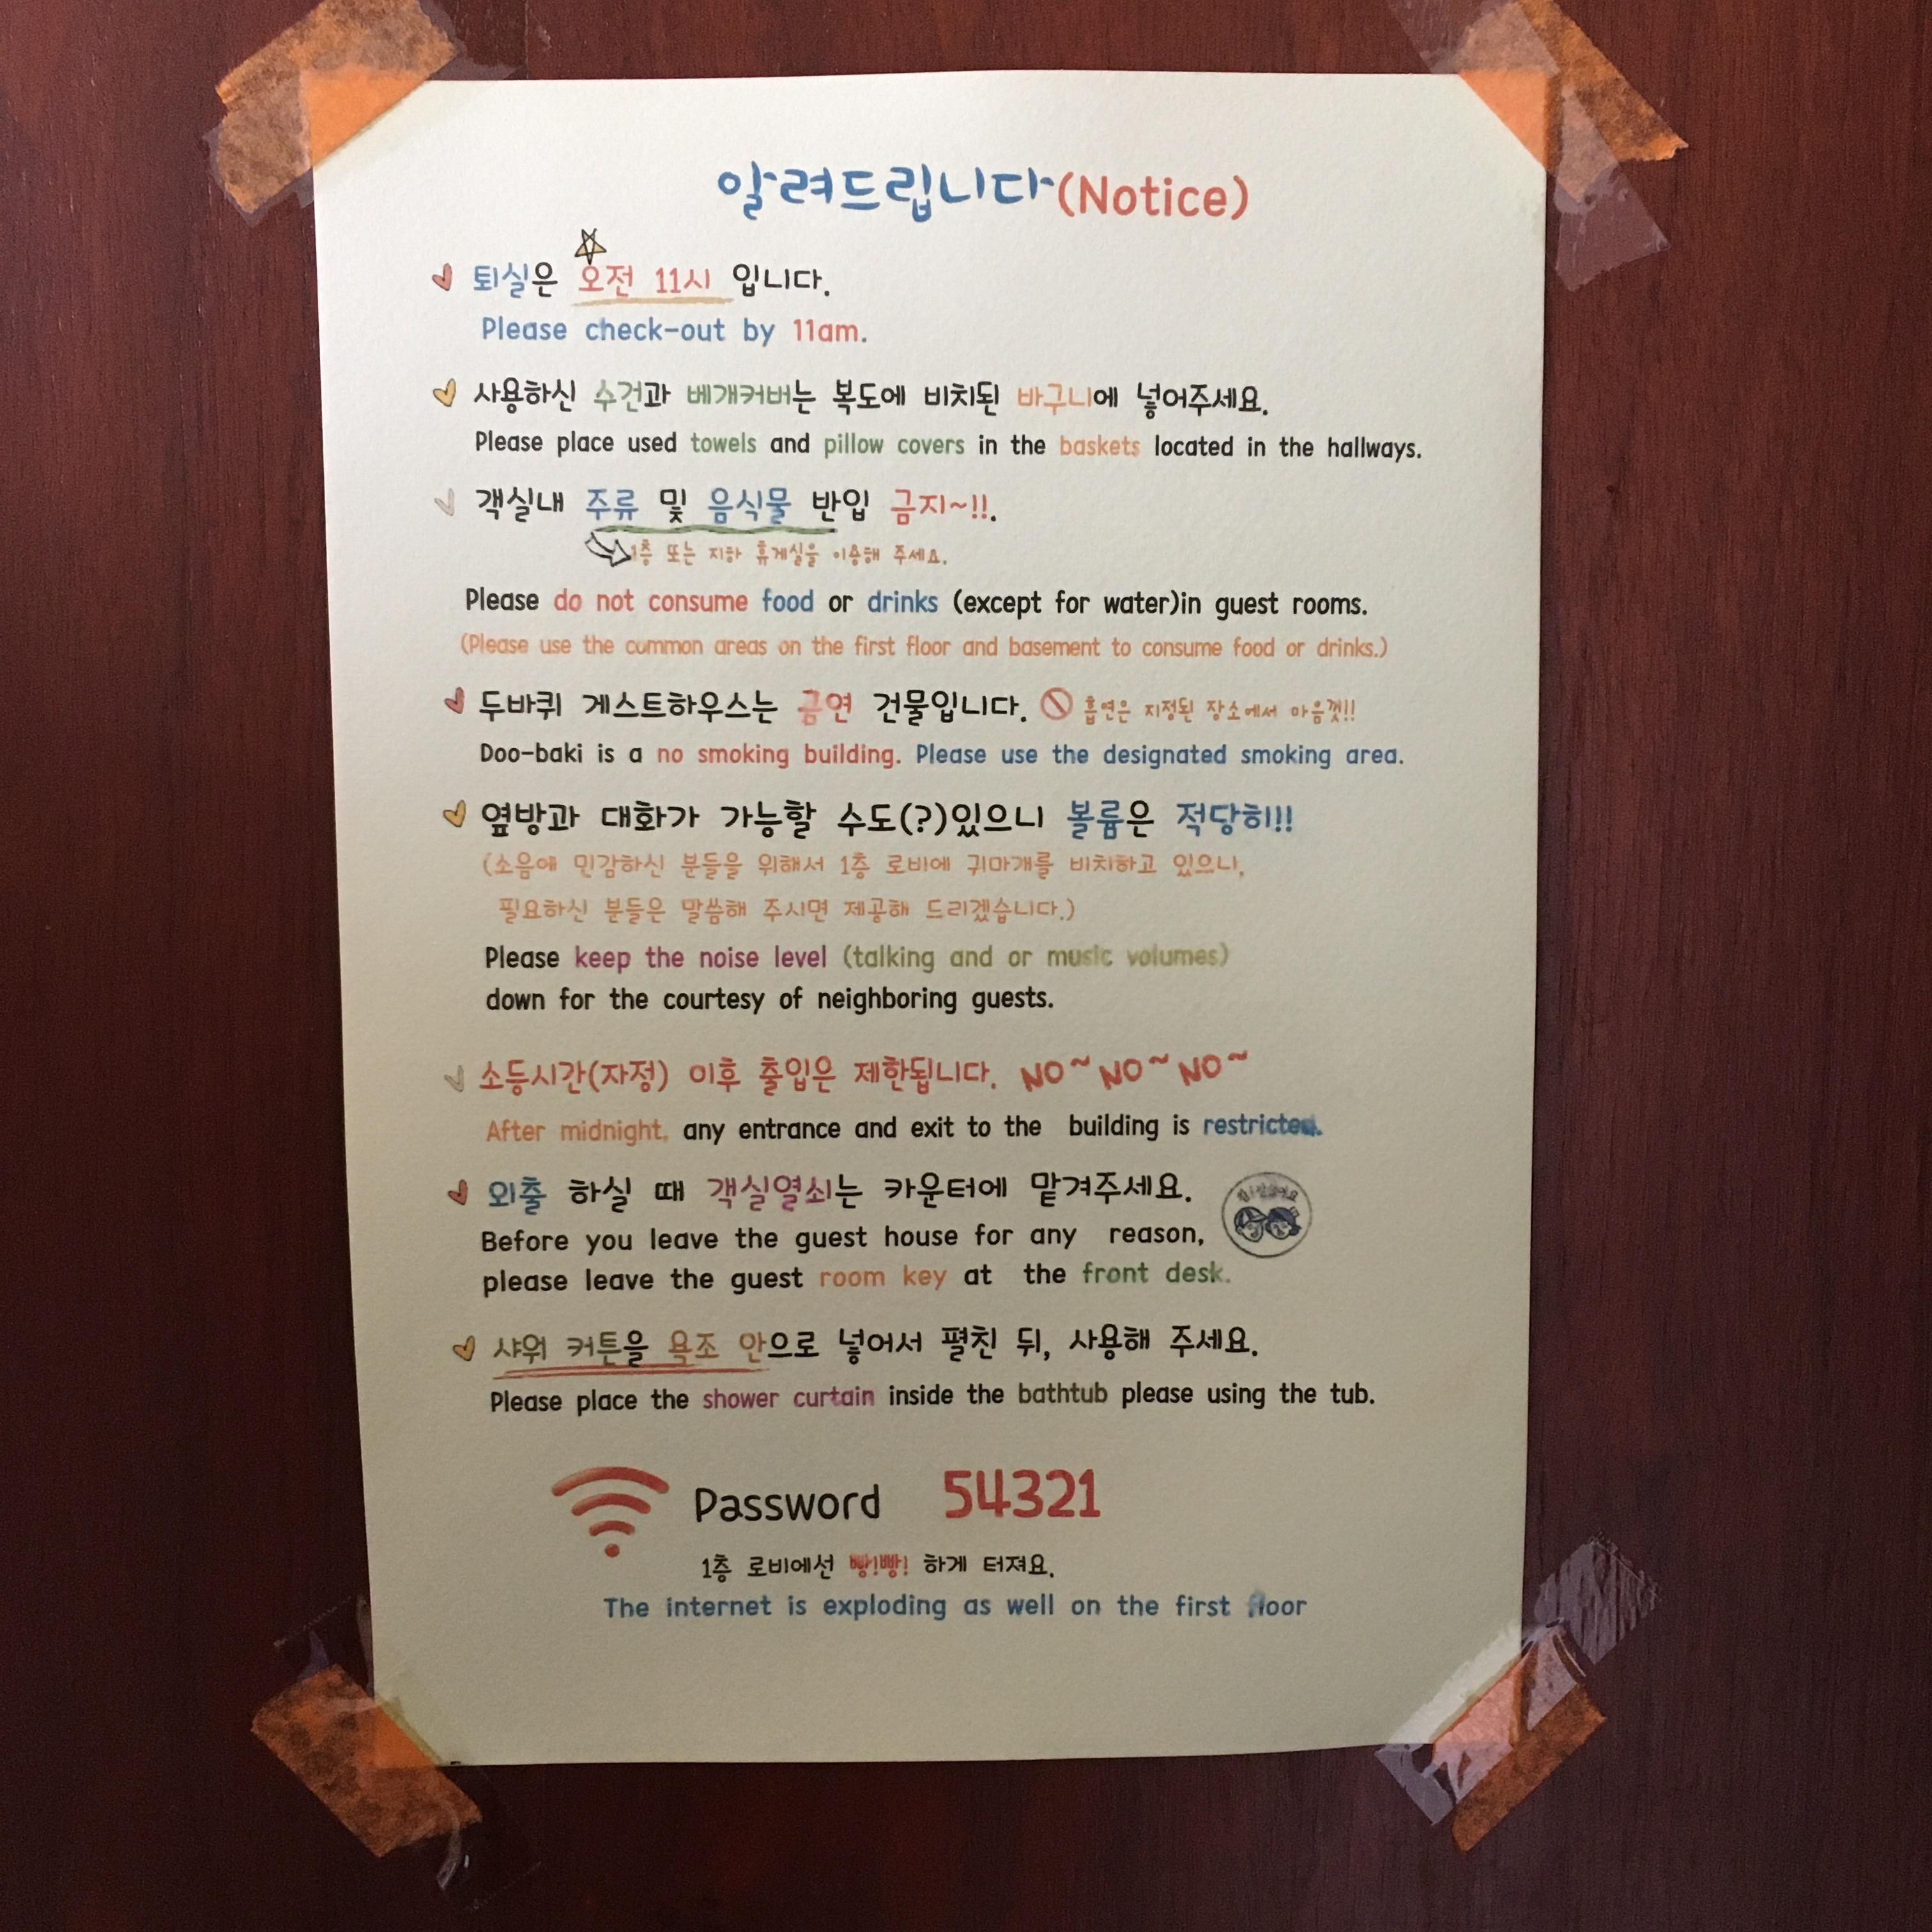 알려드립니다(Notice)
퇴실은 오전 11시 입니다.
Please check-out by 11am.
사용하신 수건과 베개커버는 복도에 비치된 바구니에 넣어주세요.
Please place used towels and pillow covers in the baskets located in the hallways.
객실내 주류 및 음식물 반입 금지~!!.
1층 또는 지하 휴게실을 이용해 주세요.
Please do not consume food or drinks (except for water)in guest rooms.
(Please use the common areas on the first floor and basement to consume food or drinks.)
두바퀴 게스트하우스는 금연 건물입니다. 흡연은 지정된 장소에서 마음껏!!
Doo-baki is a no smoking building. Please use the designated smoking area.
옆방과 대화가 가능할 수도(?)있으니 볼륨은 적당히!!
(소음에 민감하신 분들을 위해서 1층 로비에 귀마개를 비치하고 있으니,
필요하신 분들은 말씀해 주시면 제공해 드리겠습니다.)
Please keep the noise level (talking and or music volumes)
down for the courtesy of neighboring guests.
소등시간(자정) 이후 출입은 제한됩니다. NO~ NO~ NO~
After midnight, any entrance and exit to the building is restricted.
외출 하실 때 객실열쇠는 카운터에 맡겨주세요.
Before you leave the guest house for any reason,
please leave the guest room key at the front desk.
샤워 커튼을 욕조 안으로 넣어서 펼친 뒤, 사용해 주세요.
Please place the shower curtain inside the bathtub please using the tub.
Password 54321
1층 로비에선 빵!빵! 하게 터져요.
The internet is exploding as well on the first floor